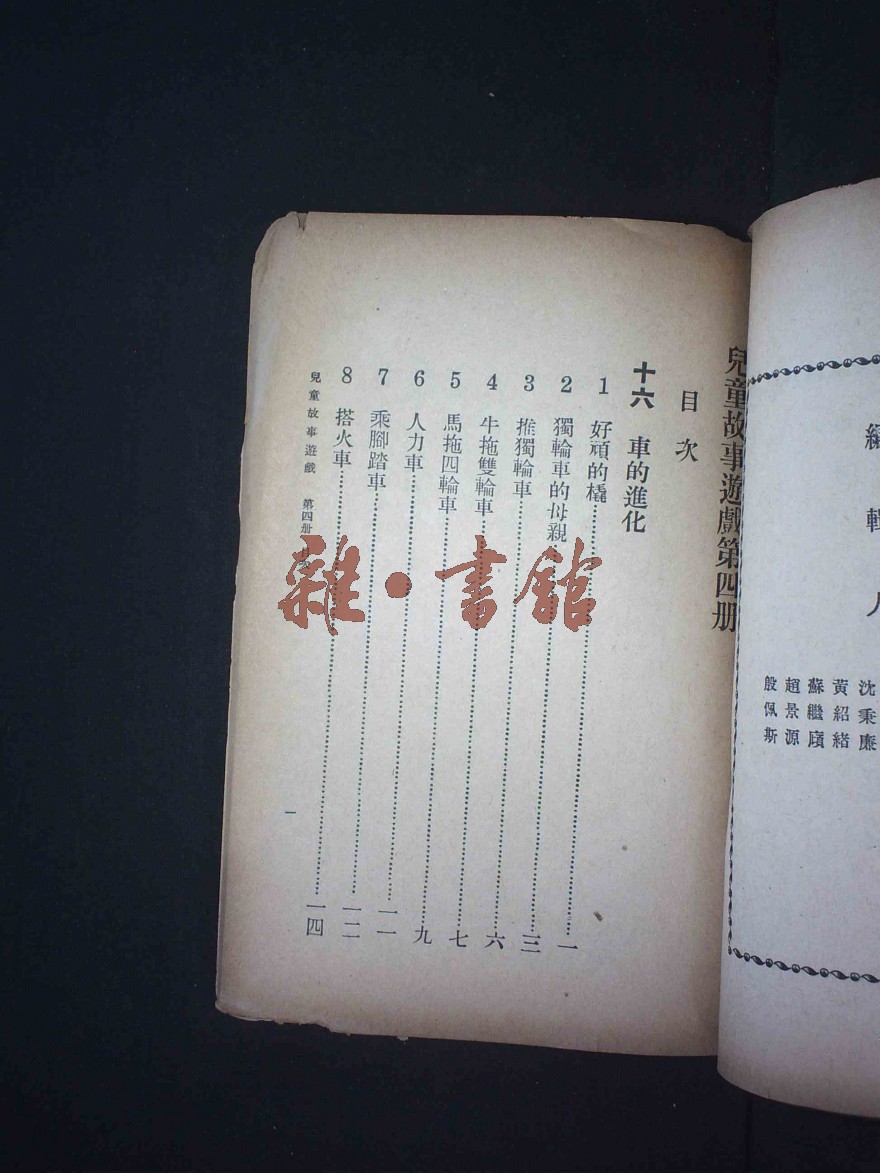 編輯人
沈秉廉
黃紹緒
蘇繼廎
趙景源
殷佩斯
兒童故事遊戲第四册
目次
十六 車的進化
1 好頑的橇……一
2 獨輪車的母親……三
3 推獨輪車……六
4 牛拖雙輪車……七
5 馬拖四輪車……九
6 人力車……一一
7 乘腳踏車……一二
8 搭火車……一四
兒童故事遊戲 第四册 目次
一
雜·書館